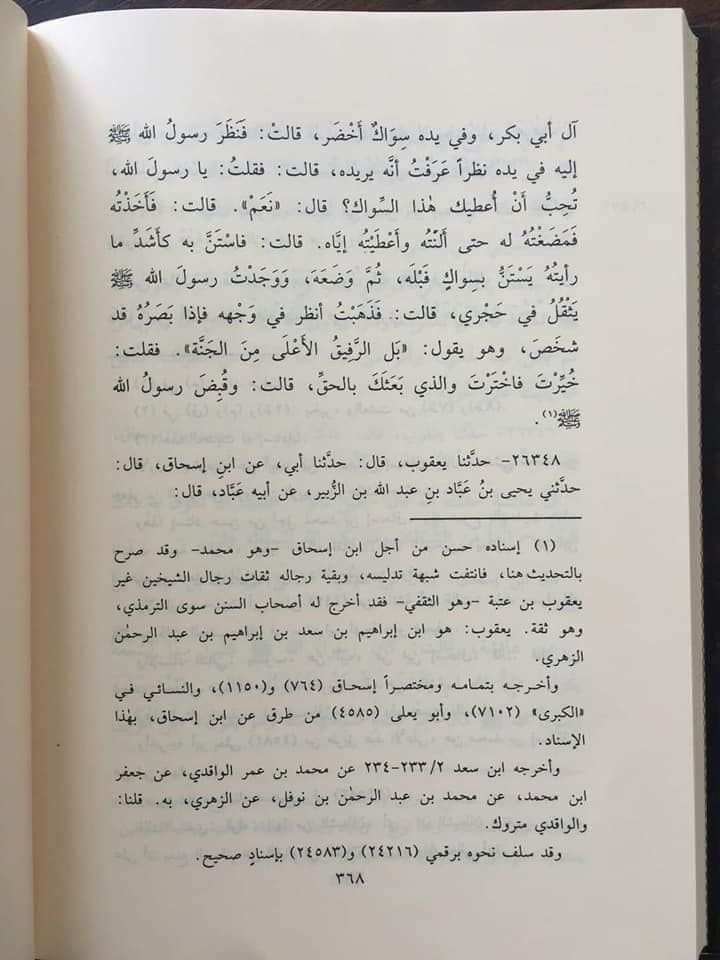 آل أبي بكر، وفي يده سِوَاكٌ أَخْضَر، قالتْ: فَنَظَرَ رسولُ الله ﷺ
إليه في يده نظراً عَرَفْتُ أنَّه يريده، قالت: فقلتُ: يا رسولَ الله،
تُحِبُّ أنْ أُعطيك هٰذا السِّواك؟ قال: «نَعَمْ». قالت: فَأَخَذْتُه
فَمَضَغْتُهُ له حتى أَلَنْتُه وأَعطَيْتُه إيَّاه. قالت: فاسْتَنَّ به كأَشَدِّ ما
رأيتُهُ يَسْتَنُّ بسِواكٍ قَبْلَه، ثُمَّ وَضَعَهَ، وَوَجَدْتُ رسولَ الله ﷺ
يَثْقُلُ في حَجْري، قالت: فَذَهَبْتُ أنظر في وَجْهه فإذا بَصَرُهُ قد
شخَصَ، وهو يقول: «بَل الرَّفِيقُ الأَعْلَى مِنَ الجَنَّة». فقلت:
خُيِّرْتَ فاخْتَرْتَ والذي بَعَثَكَ بالحقِّ، قالت: وقُبِضَ رسولُ الله
ﷺ(١).
٢٦٣٤٨- حدَّثنا يعقوب، قال: حدَّثنا أبي، عن ابنِ إسحاق، قال:
حدَّثني يحيى بنُ عَبَّاد بنِ عبد الله بن الزُّبير، عن أبيه عبَّاد، قال:
(١) إسناده حسن من أجل ابن إسحاق -وهو محمد- وقد صرح
بالتحديث هنا، فانتفت شبهة تدليسه، وبقية رجاله ثقات رجال الشيخين غير
يعقوب بن عتبة -وهو الثقفي- فقد أخرج له أصحاب السنن سوى الترمذي،
وهو ثقة. يعقوب: هو ابن إبراهيم بن سعد بن إبراهيم بن عبد الرحمٰن
الزهري.
وأخرجه بتمامه ومختصراً إسحاق (٧٦٤) و(١١٥٠)، والنسائي في
«الكبرى» (٧١٠٢)، وأبو يعلى (٤٥٨٥) من طرق عن ابن إسحاق، بهٰذا
الإسناد.
وأخرجه ابن سعد ٢/ ٢٣٣-٢٣٤ عن محمد بن عمر الواقدي، عن جعفر
ابن محمد، عن محمد بن عبد الرحمٰن بن نوفل، عن الزهري، به. قلنا:
والواقدي متروك.
وقد سلف نحوه برقمي (٢٤٢١٦) و(٢٤٥٨٣) بإسنادٍ صحيح.
٣٦٨